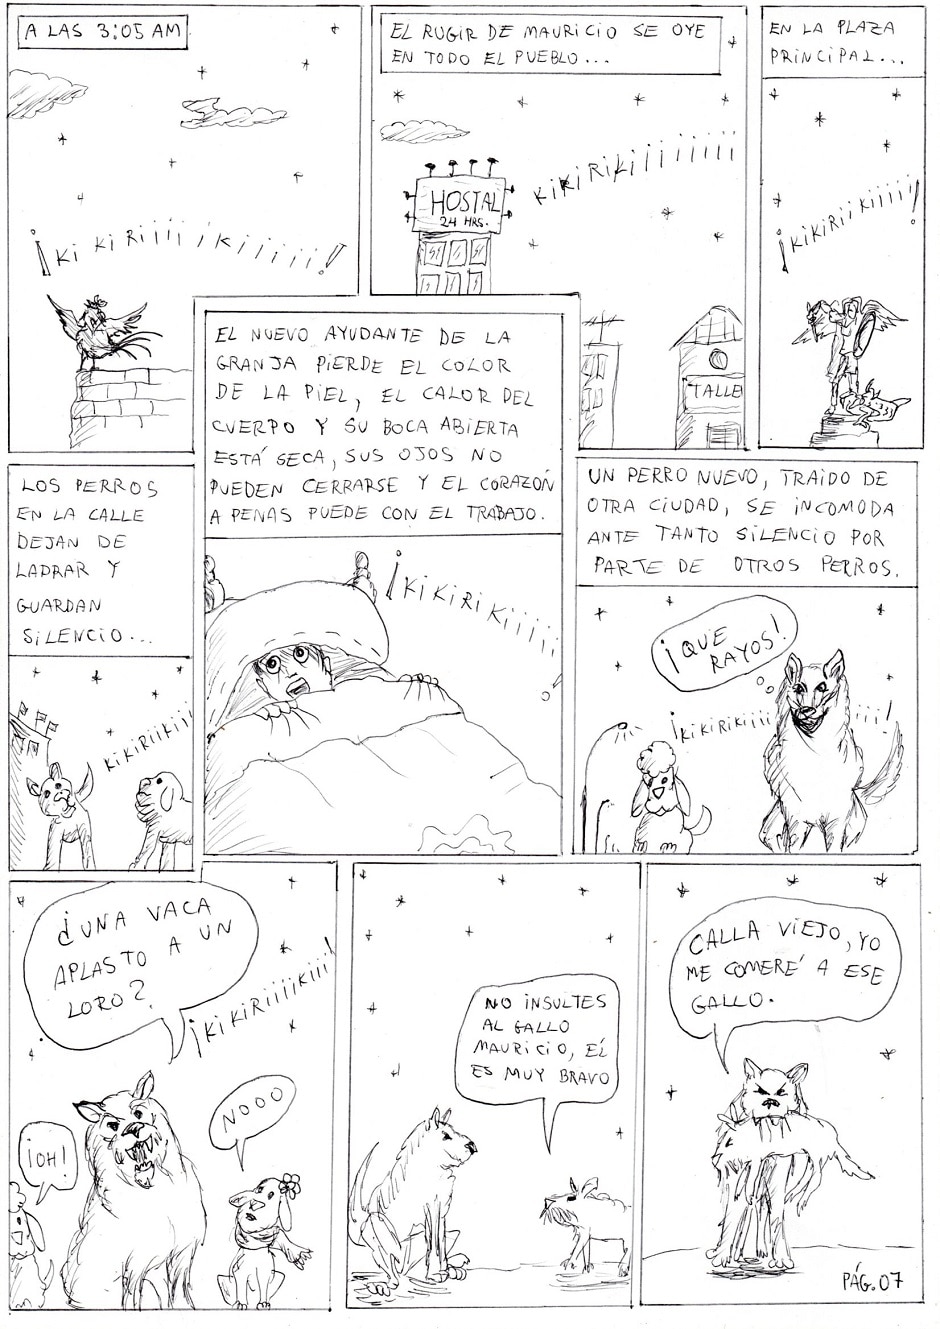 A LAS 3:05 AM
¡KiKiRiiiiiKiiiiii!
EL RUGIR DE MAURICIO SE OYE
EN TODO EL PUEBLO...
KiKiRiKiiiiiiii
HOSTAL
24 HRS.
TALLE
EN LA PLAZA
PRINCIPAL...
¡KiKiRiiKiiiii!
LOS PERROS
EN LA CALLE
DEJAN DE
LADRAR Y
GUARDAN
SILENCIO...
KiKiRiiKiii
EL NUEVO AYUDANTE DE LA
GRANJA PIERDE EL COLOR
DE LA PIEL, EL CALOR DEL
CUERPO Y SU BOCA ABIERTA
ESTÁ SECA, SUS OJOS NO
PUEDEN CERRARSE Y EL CORAZÓN
A PENAS PUEDE CON EL TRABAJO.
¡KiKiRiKiiiiii!
UN PERRO NUEVO, TRAIDO DE
OTRA CIUDAD, SE INCOMODA
ANTE TANTO SILENCIO POR
PARTE DE OTROS PERROS.
¡QUE
RAYOS!
¡KiKiRiKiiiiiii!
¿UNA VACA
APLASTO A UN
LORO?
¡KiKiRiiiiKiii!
¡OH!
NOOO
NO INSULTES
AL GALLO
MAURICIO, ÉL
ES MUY BRAVO
CALLA VIEJO, YO
ME COMERÉ A ESE
GALLO.
PÁG.07